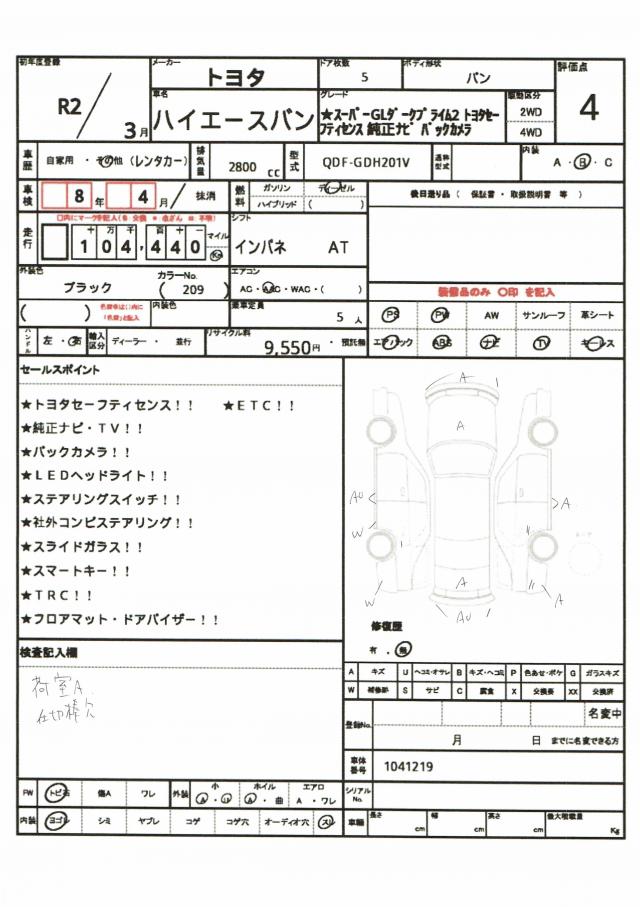 初年度登録 メーカー ドア枚数 ボディ形状 評価点
トヨタ 5 バン
R2 / 3月 車名 グレード 駆動区分 4
ハイエースバン ★スーパーGLダークプライム2 トヨタセーフティセンス 純正ナビ バックカメラ 2WD
4WD
車歴 自家用・その他(レンタカー) 排気量 2800 cc 型式 QDF-GDH201V 通称型式 内装 A・B・C
車検 8 年 4 月 / 抹消 燃料 ガソリン ディーゼル 後日送り品( 保証書・取扱説明書 等 )
ハイブリッド ( )
走行 十 万 千 百 十 一 マイル シフト
104,440 Km インパネ AT
外装色 カラーNo. エアコン
ブラック ( 209 ) AC・AAC・WAC・( ) 装備品のみ ○印 を記入
( ) 内装色 乗車定員 5 人 PS PW AW サンルーフ 革シート
ハンドル 左・右 輸入区分 ディーラー・並行 リサイクル料 9,550円・預託無 エアバック ABS ナビ TV キーレス
セールスポイント
★トヨタセーフティセンス!! ★ETC!!
★純正ナビ・TV!!
★バックカメラ!!
★LEDヘッドライト!!
★ステアリングスイッチ!!
★社外コンビステアリング!!
★スライドガラス!!
★スマートキー!!
★TRC!!
★フロアマット・ドアバイザー!!
A
A
AU
A
W
W
A
A
AU
修復歴
有・無
検査記入欄
荷室A
仕切棒欠
A キズ U ヘコミ・オサレ B キズ・ヘコミ P 色あせ・ボケ G ガラスキズ
W 補修跡 S サビ C 腐食 X 交換要 XX 交換済
登録No. 名変中
月 日 までに名変できる方
車体番号 1041219
FW トビ石 傷A ワレ 外装 小 A・U ホイル A・曲 エアロ A・ワレ シリアルNo.
内装 ヨゴレ シミ ヤブレ コゲ コゲ穴 オーディオ穴 スレ 車輛 長さ cm 幅 cm 高さ cm 最大積載量 Kg